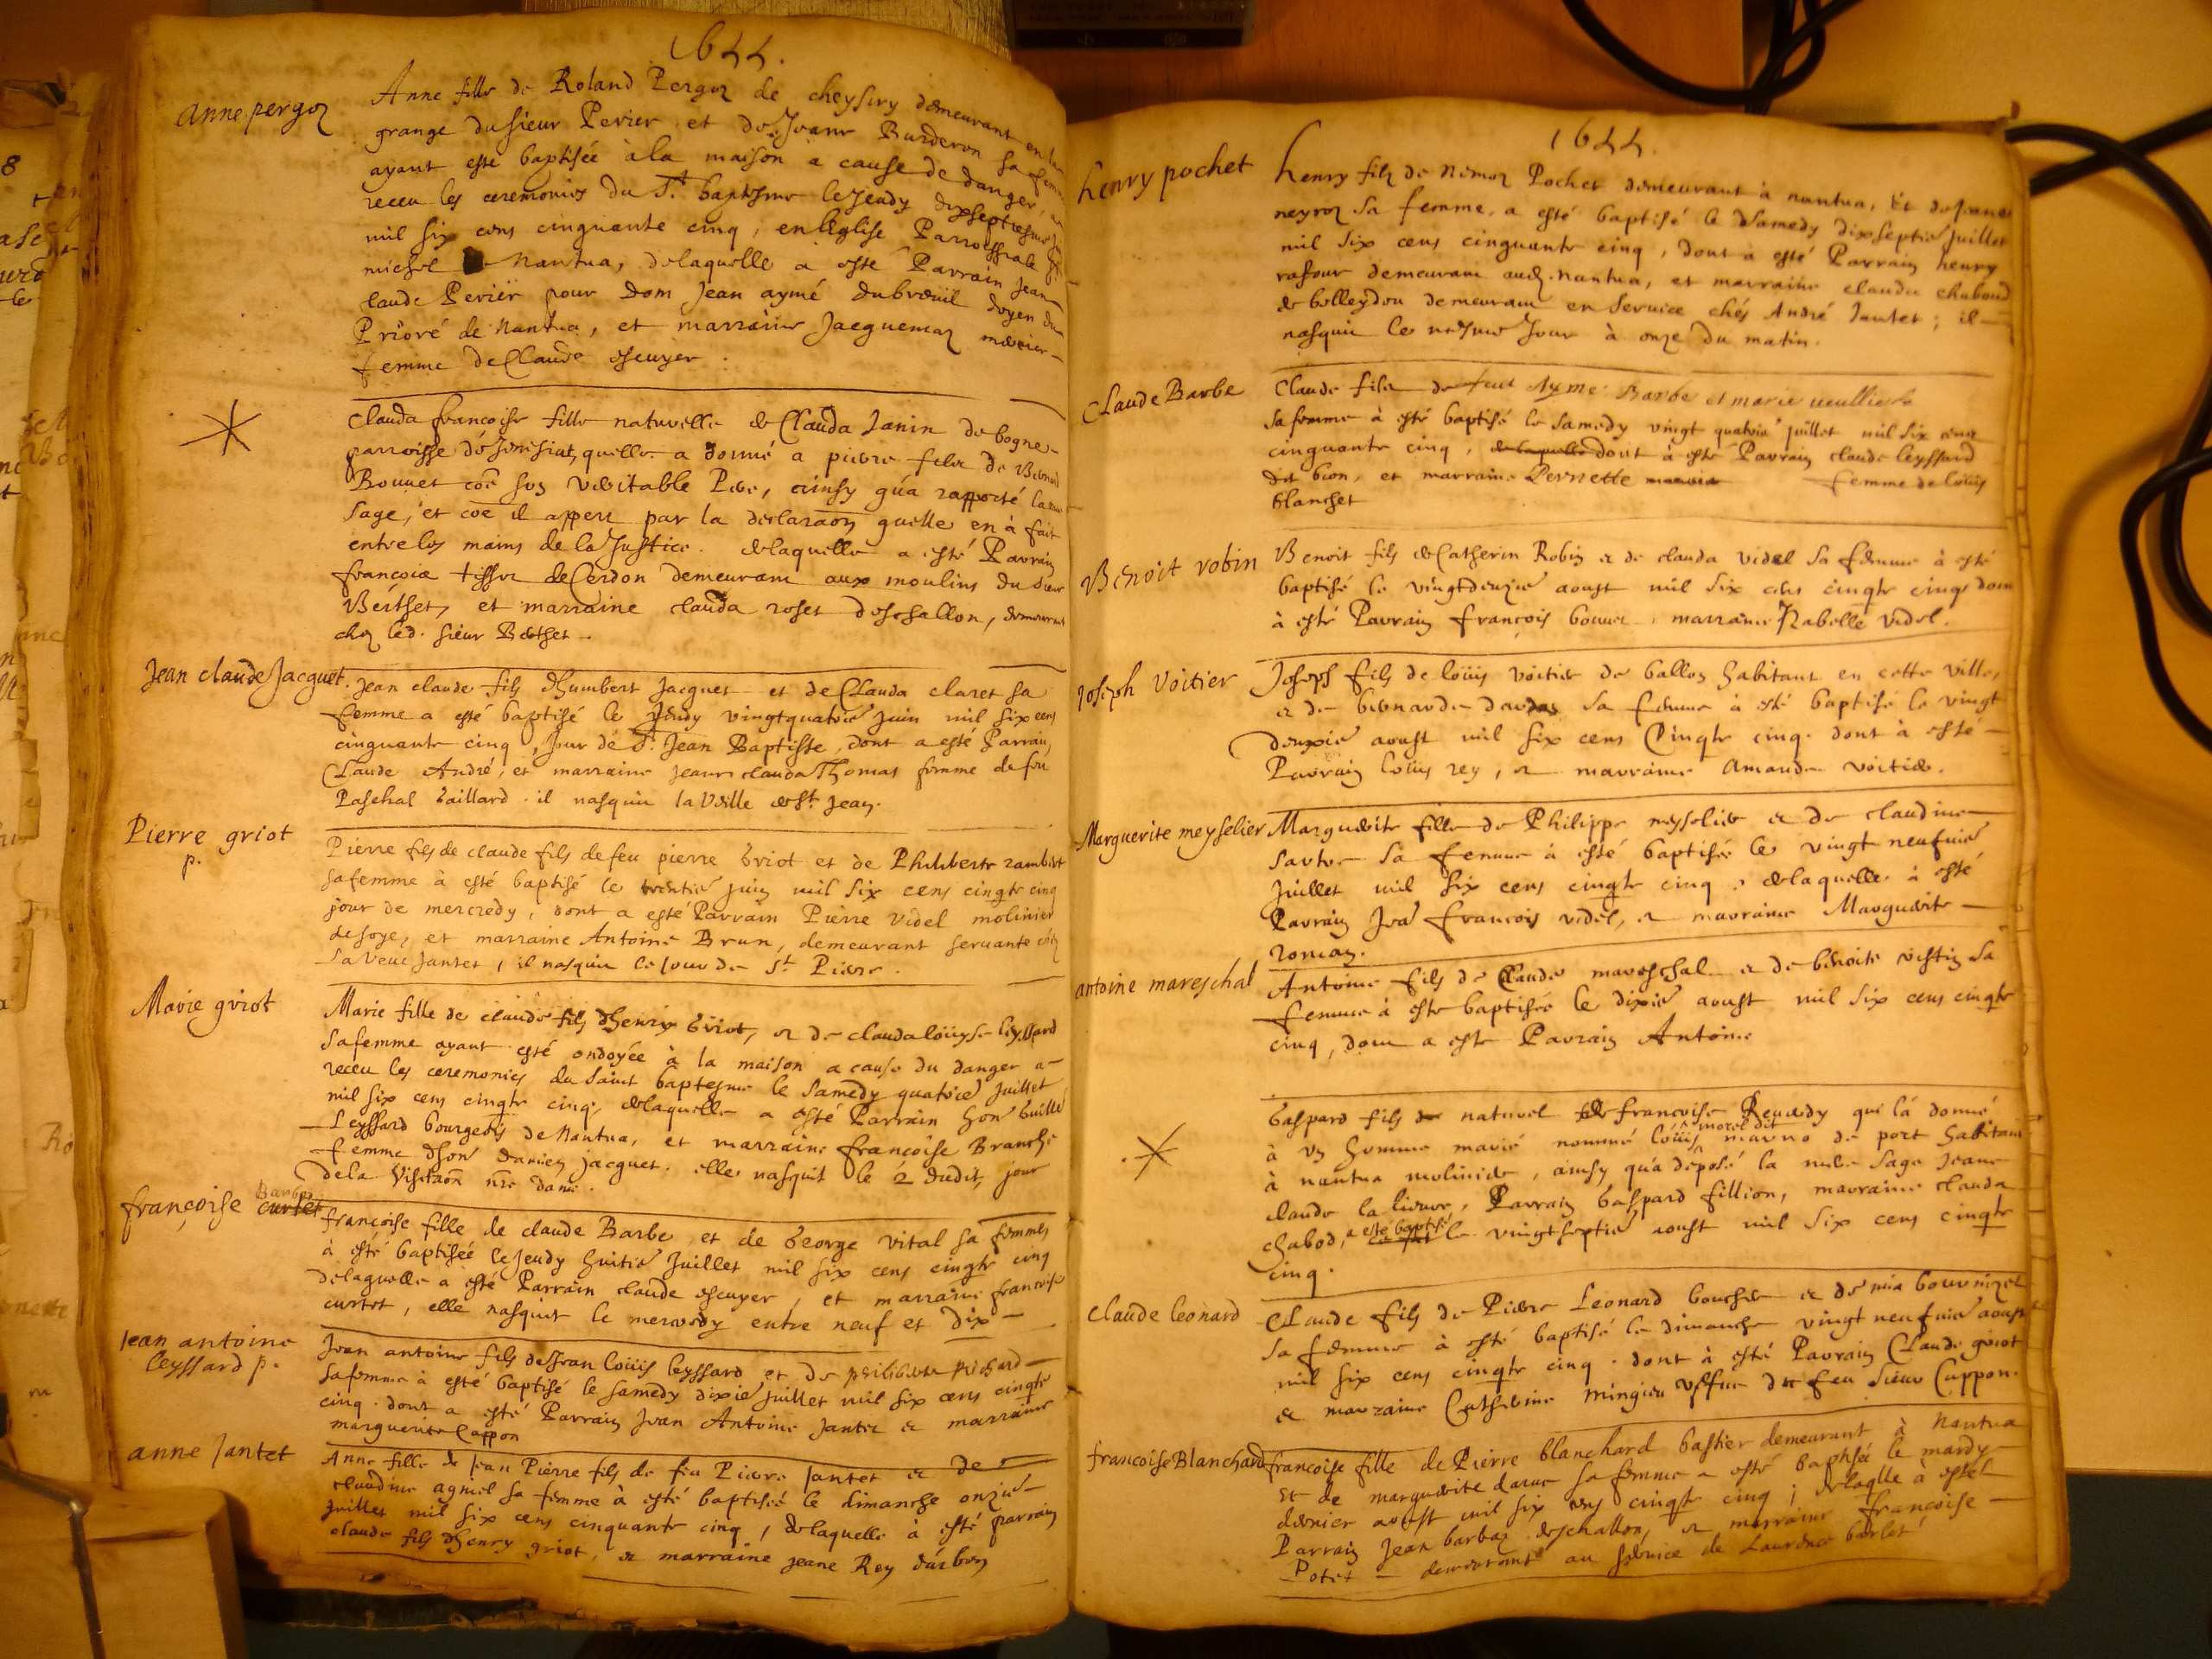 1655.
anne pergoz
Anne fille de Roland Pergoz de cheysiry demeurant en la
grange du sieur Perier et de Jeane Burderon sa femme
ayant esté baptisée à la maison a cause de danger, a
receu les ceremonies du St. baptesme le Jeudy dixseptiesme
mil six cens cinquante cinq, en l'Eglise Parrochiale St
michel de Nantua, de laquelle a esté Parrain Jean
claude Perier pour Dom Jean aymé dubreüil doyen du
Prioré de Nantua, et marraine Jacquemaz mercier
femme de Claude escuyer.
Clauda francoise fille naturelle de Clauda Janin de bogne
parroisse de senesiat, quelle a donné a pierre felix de
Bouuet coë son veritable Pere, ainsy qu'a rapporté la
sage, et coë il appert par la declaraon quelle en à fait
entre les mains de la Justice. de laquelle a esté Parrain
françois tissot de Cerdon demeurant aux moulins du sieur
Berthet, et marraine clauda roset deschallon, demeurant
chez led. sieur Bethet.
Jean claude Jacquet.
Jean claude fils d'humbert Jacquet et de Clauda claret sa
femme a esté baptisé le Jeudy vingtquatrie Juin mil six cens
cinquante cinq, Jour de St. Jean Baptiste, dont a esté Parrain
Claude André, et marraine Jeane clauda Thomas femme de feu
Paschal baillard. il nasquit la Veille de St Jean.
Pierre griot
p.
Pierre fils de claude fils de feu pierre Griot et de Philiberte rambert
sa femme à esté baptisé le trentie juin mil six cens cinqte cinq
jour de mercredy, dont a esté Parrain Pierre Videl molinier
de soye, et marraine Antoine Brun, demeurant servante chez
la veue Jantet, il nasquit le Jour de St Pierre.
Marie griot
Marie fille de claude fils d'henry Griot, et de clauda loüyse leyssard
sa femme ayant esté ondoyée à la maison a cause du danger a
receu les ceremonies du saint baptesme le samedy quatrie Juillet
mil six cens cinqte cinq, de laquelle a esté Parrain hon Guille
Leyssard bourgeois de Nantua, et marraine françoise Branche
femme d'hon Damien Jacquet. elle nasquit le 2 dudit, jour
de la Visitaon nre dame.
françoise curtet Barbe
françoise fille de claude Barbe et de George vital sa femme
à esté baptisée le Jeudy huitie Juillet mil six cens cinqte cinq
de laquelle a esté Parrain claude escuyer, et marraine francoise
curtet, elle nasquit le mercredy entre neuf et dix
Jean antoine
leyssard p.
Jean antoine fils de Jean loüis leyssard et de philiberte pichard
sa femme à esté baptisé le samedy dixie Juillet mil six cens cinqte
cinq. dont a esté Parrain Jean Antoine Jantet et marraine
marguerite Cappon
anne Jantet
Anne fille de Jean Pierre fils de feu Pierre Jantet et de
claudine agniel sa femme à esté baptisée le dimanche onzie
Juillet mil six cens cinquante cinq, de laquelle à esté parrain
claude fils d'henry griot, et marraine jeane Rey d'arbon
1655.
henry pochet
henry filz de Nemoz Pochet demeurant à nantua, Et de Jeane
neyroz sa femme, a esté baptisé le Samedy dixseptie Juillet
mil six cens cinquante cinq, dont a esté Parrain henry
rafour demeurant aud. nantua, et marraine clauda chaboud
de belleydou demeurant en service chés André Jantet; il
nasquit le mesme Jour à onze du matin.
Claude Barbe
Claude filz de feu Aymé Barbe et marie
sa femme à esté baptisé le samedy vingt quatrie juillet mil six cens
cinquante cinq, de laquelle dont à esté Parrain claude leyssard
dit bion, et marraine Pernette femme de loüis
blanchet
Benoit robin
Benoit fils de Catherin Robin et de clauda videl sa femme à esté
baptisé le vingtdeuzie aoust mil six cens cinqte cinq dont
à esté Parrain françois bouuet, marraine Isabelle videl.
Joseph Voitier
Joseph fils de loüis voitier de ballon habitant en cette ville,
et de bernarde sa femme à esté baptisé le vingt
deuxie aoust mil six cens Cinqte cinq. dont à esté
Parrain loüis rey, et marraine Amande voitier.
Marguerite meysselier
Marguerite fille de Philippe meysselier et de claudine
sartre sa femme à esté baptisée le vingt neufuie
Juillet mil six cens cinqte cinq, de laquelle à esté
Parrain Jean francois videl, et marraine Marguerite
roman.
antoine mareschal
Antoine fils de Claude mareschal et de benoite sa
femme à esté baptisée le dixie aoust mil six cens cinqte
cinq, dont a esté Parrain Antoine
Gaspard fils de naturel de francoise Reuerdy qui l'a donné
à un homme marié nommé loüis morel dit de port habitant
à nantua molinier, ainsy qu'a déposé la mere sage Jeane
claude la lieure, Parrain Gaspard fillion, marraine clauda
chabod, a esté baptisé le vingtseptie aoust mil six cens cinqte
cinq.
Claude leonard
Claude fils de Pierre Leonard boucher et de mia
sa femme à esté baptisé le dimanche vingt neufuie aoust
mil six cens cinqte cinq. dont à esté Parrain Claude griot
et marraine Catherine mingieu de feu sieur Cappon.
francoise Blanchard
francoise fille de Pierre blanchard bastier demeurant à Nantua
et de marguerite sa femme a esté baptisée le mardy
dernier aoust mil six cens cinqte cinq; de laqlle à esté
Parrain Jean barbaz deschallon, et marraine françoise
Potet demeurant au service de Laurence barlet